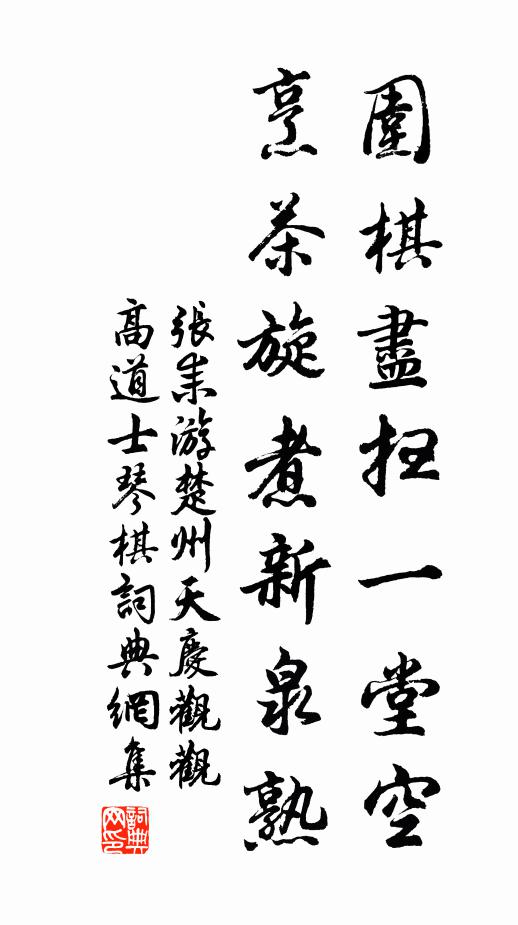 圍棋盡掃一堂空
烹茶旋煮新泉熟
張耒游楚州天慶觀觀
高道士琴棋詞典網集
詞典網印